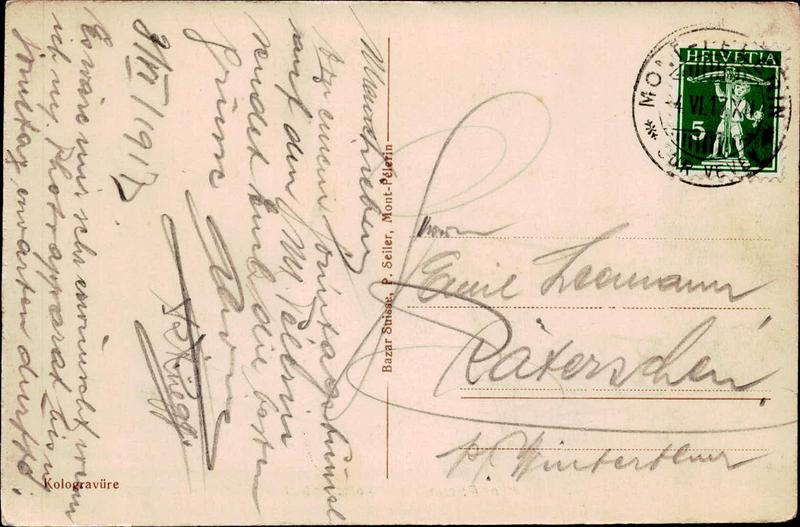 HELVETIA
5
MONT PELERIN
SUR VEVEY
VI. 17
Herrn
Emil Leemann
Räterschen
b/ Winterthur
Bazar Suisse, P. Seiler, Mont-Pélerin
Kologravüre
einem Sonntagsbummel
auf den Mt. Pélerin
sendet Euch die besten
Grüsse
3/VI/1917
Es wäre mir sehr erwünscht wenn
ich my. Photoapparat bis n.
Sonntag erwarten dürfte.